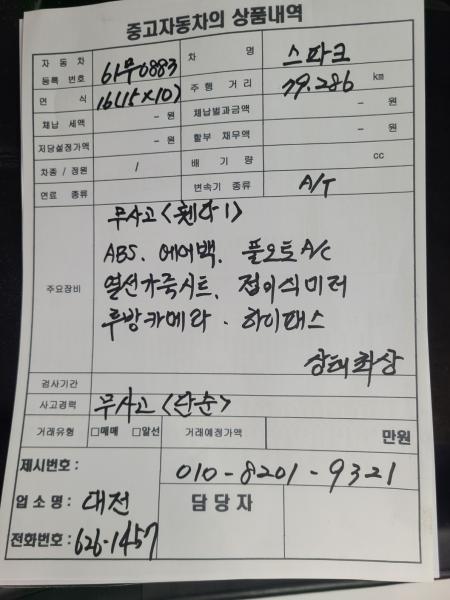 중고자동차의 상품내역
자동차등록번호 61무0883 차명 스파크
연식 16(15×10) 주행거리 79.286 km
체납세액 - 원 체납벌과금액 - 원
저당설정가액 - 원 할부 채무액 - 원
차종 / 정원 / 배기량 cc
연료 종류 변속기 종류 A/T
주요장비
무사고〈휀다1〉
ABS. 에어백. 풀오토A/C
열선가죽시트. 접이식미러
후방카메라. 하이패스
상태최상
검사기간
사고경력 무사고〈단순〉
거래유형 □매매 □알선 거래예정가액 만원
제시번호 : 010-8201-9321
업소명 : 대전 담당자
전화번호 : 626-1457